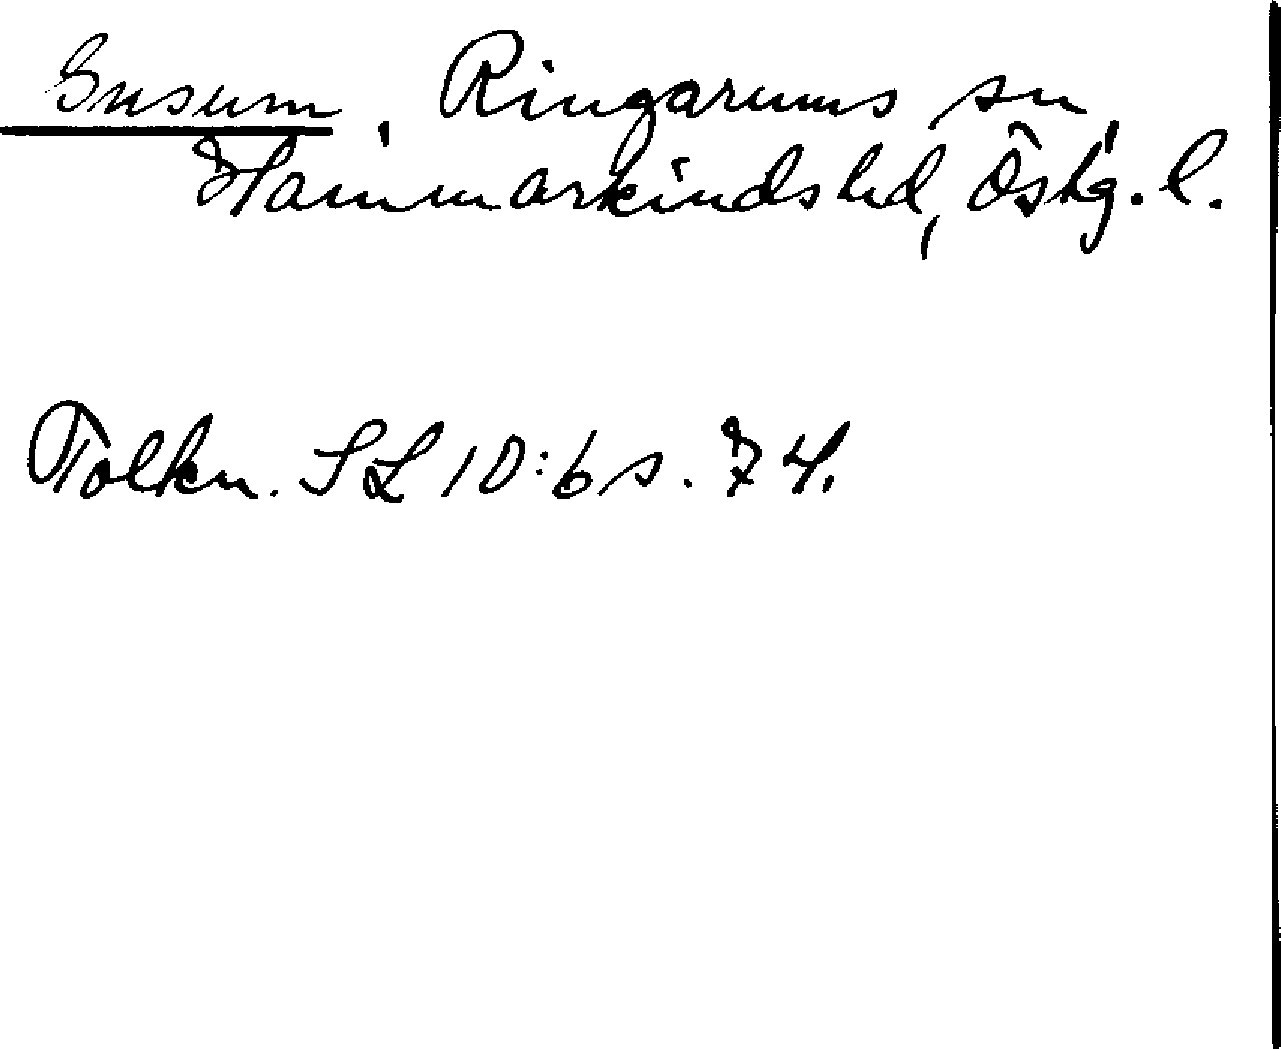 Gusum, Ringarums sn,
Hammarkinds hd, Östg. l.
Tolkn. SL 10:6 s. 74.